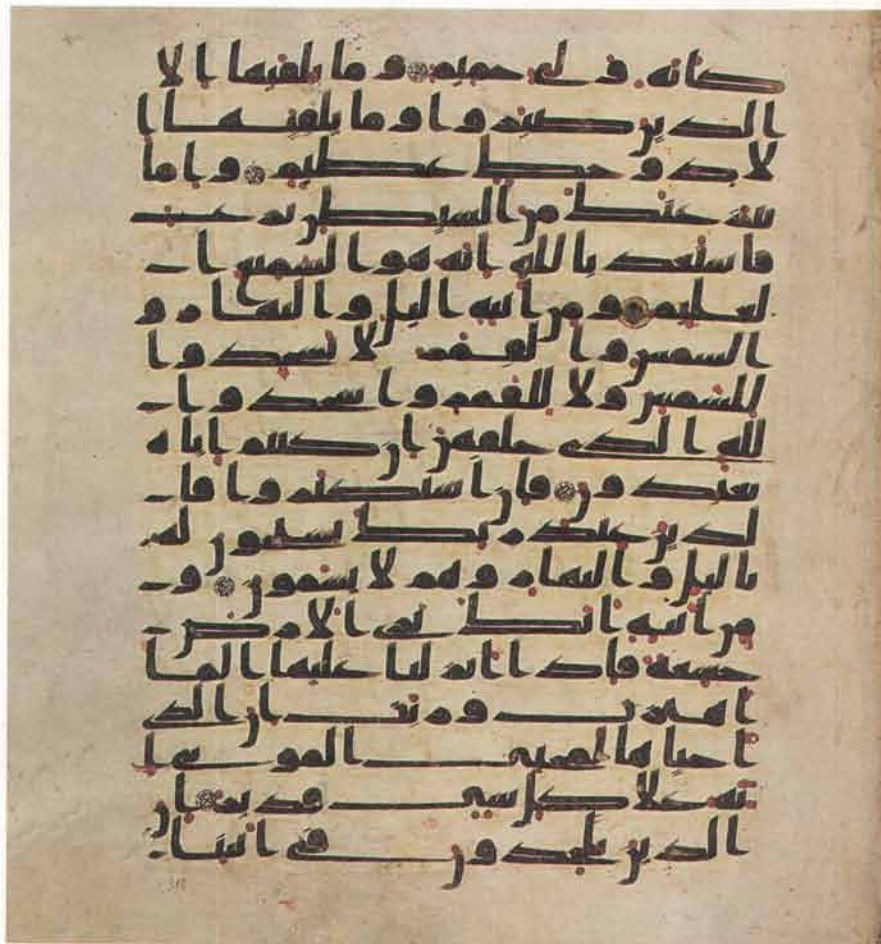 كانه ولي حميم وما يلقيها الا
الذين صبروا وما يلقيها ا
لا ذو حظ عظيم واما
ينزغنك من الشيطن نزغ
فاستعذ بالله انه هو السميع ا
لعليم ومن ايته اليل والنهار و
الشمس والقمر لا تسجدوا
للشمس ولا للقمر واسجدوا
لله الذي خلقهن ان كنتم اياه
تعبدون فان استكبروا فا
لذين عند ربك يسبحون له
باليل والنهار وهم لا يسمون و
من ايته انك ترى الارض
خشعة فاذا انزلنا عليها الما
اهتزت وربت ان الذي
احياها لمحي الموتى ا
نه على كل شي قدير ان
الذين يلحدون في ايتنا